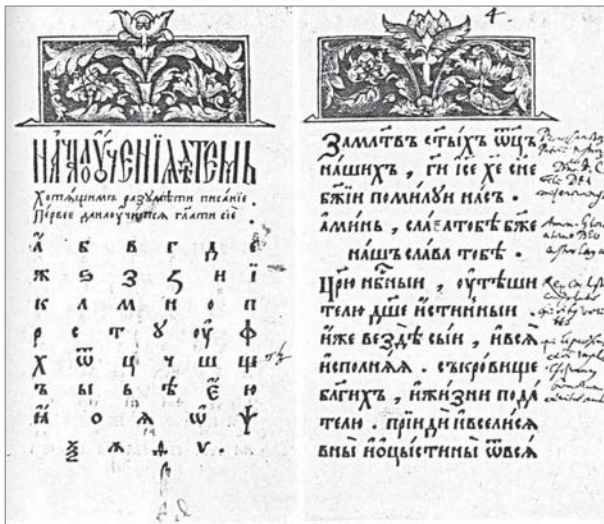 НАЧАЛО ОУЧЕНЇѦ ДѢТЕМЬ
Хотѧщимъ разꙋмѣти писанїе .
Первее данаоучитсѧ гл҃ати сїе .
а б в г д е
ж ѕ з ꙁ и ї
к л м н о п
р с т у оу ф
х ѿ ц ч ш щ
ъ ы ь ѣ є ю
ꙗ о ѧ ѡ ѱ
ѯ ѫ ѳ ѵ .
4.
Замл҃твъ ст҃ыхъ ѿц҃ъ
нашихъ , г҃и іс҃е х҃е сн҃е
бж҃їи помилꙋи насъ .
аминь , слаꙗатобѣ бж҃е
нашъ слава тобѣ .
Цр҃ю нб҃ныи , оутѣши
телю дш҃е истинныи .
иже вездѣ сыи , ивсѧ
исполнѧѧ . съкровище
бл҃гихъ , ижизни пода
телю . прїиди ивселисѧ
вны иоцыстины ѿвсѧ